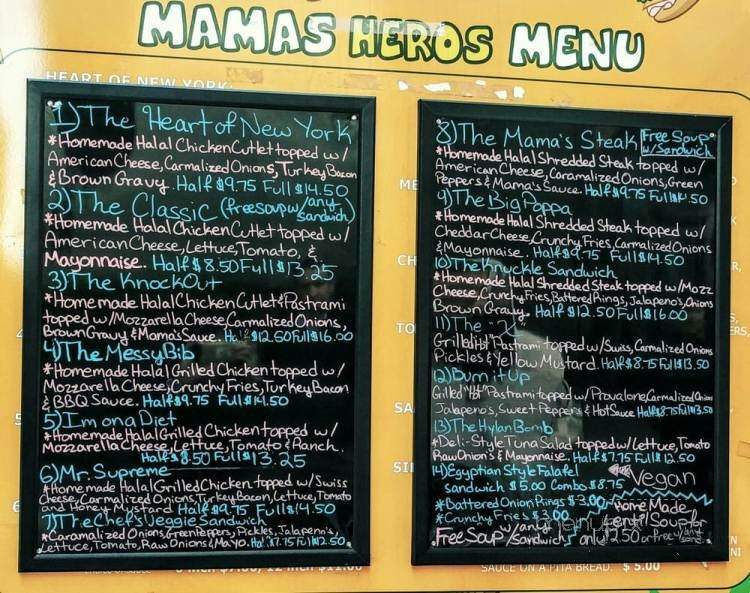 MAMAS HEROS MENU
HEART OF NEW YORK
1) The Heart of New York
*Homemade Halal Chicken Cutlet topped w/
American Cheese, Carmalized Onions, Turkey Bacon
& Brown Gravy. Half $9.75 Full $14.50
2) The Classic (free soup w/ any sandwich)
*Homemade Halal Chicken Cutlet topped w/
American Cheese, Lettuce, Tomato, &
Mayonnaise. Half $8.50 Full $13.25
3) The KnockOut
*Homemade Halal Chicken Cutlet & Pastrami
topped w/ Mozzarella Cheese, Carmalized Onions,
Brown Gravy & Mama's Sauce. $12.50 Full $16.00
4) The Messy Bib
*Homemade Halal Grilled Chicken topped w/
Mozzarella Cheese, Crunchy Fries, Turkey Bacon
& BBQ Sauce. Half $9.75 Full $14.50
5) Im on a Diet
*Homemade Halal Grilled Chicken topped w/
Mozzarella Cheese, Lettuce, Tomato & Ranch.
Half $8.50 Full $13.25
6) Mr. Supreme
*Homemade Halal Grilled Chicken topped w/ Swiss
Cheese, Carmalized Onions, Turkey Bacon, Lettuce, Tomato
and Honey Mustard Half $9.75 Full $14.50
7) The Chef's Veggie Sandwich
*Caramalized Onions, Green Peppers, Pickles, Jalapeno's,
Lettuce, Tomato, Raw Onions & Mayo. Half $7.75 Full $12.50
8) The Mama's Steak Free Soup w/ Sandwich
*Homemade Halal Shredded Steak topped w/
American Cheese, Caramalized Onions, Green
Peppers & Mama's Sauce. Half $9.75 Full $14.50
9) The Big Poppa
*Homemade Halal Shredded Steak topped w/
Cheddar Cheese, Crunchy Fries, Carmalized Onions
& Mayonnaise. Half $9.75 Full $14.50
10) The Knuckle Sandwich
*Homemade Halal Shredded Steak topped w/ Mozz
Cheese, Crunchy Fries, Battered Rings, Jalapeno's, Onions
Brown Gravy. Half $12.50 Full $16.00
11) The
Grilled "Hot" Pastrami topped w/ Swiss, Carmalized Onions
Pickles & Yellow Mustard. Half $8.75 Full $13.50
12) Burn it Up
Grilled "Hot" Pastrami topped w/ Provalone, Carmalized Onions
Jalapeno's, Sweet Peppers & Hot Sauce Half $8.75 Full $13.50
13) The Hylan Bomb
*Deli-Style Tuna Salad topped w/ Lettuce, Tomato
Raw Onions & Mayonnaise. Half $7.75 Full $12.50
14) Egyptian Style Falafel
Sandwich $5.00 Combo $8.75
Vegan
*Battered Onion Rings $3.00
*Crunchy Fries $3.00
Free Soup w/ any Sandwich
Home Made
Lentil Soup for
only $3.50 or free w/ any sand.
SAUCE ON A PITA BREAD. $5.00